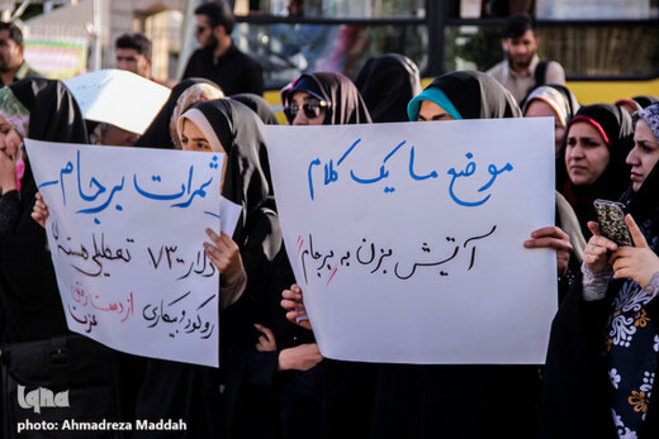 موضع ما یک کلام
آتیش بزن به برجام
ثمرات برجام
دلار ۷۳۰۰ تعطیلی هسته‌ای
رکود و بیکاری از دست رفتن
عزت
iqna
photo: Ahmadreza Maddah